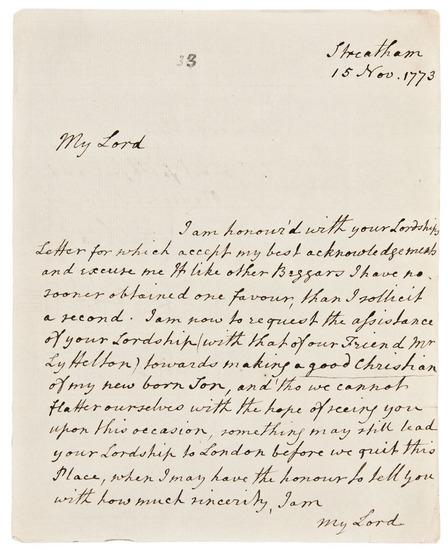 33
Streatham
15 Nov. 1773
My Lord
I am honour'd with your Lordships
Letter for which accept my best acknowledgements
and excuse me If like other Beggars I have no
sooner obtained one favour, than I sollicit
a second. I am now to request the assistance
of your Lordship (with that of our Friend Mr
Lyttelton) towards making a good Christian
of my new born Son, and tho we cannot
flatter ourselves with the hope of seeing you
upon this occasion, something may still lead
your Lordship to London before we quit this
Place, when I may have the honour to tell you
with how much sincerity, I am
My Lord